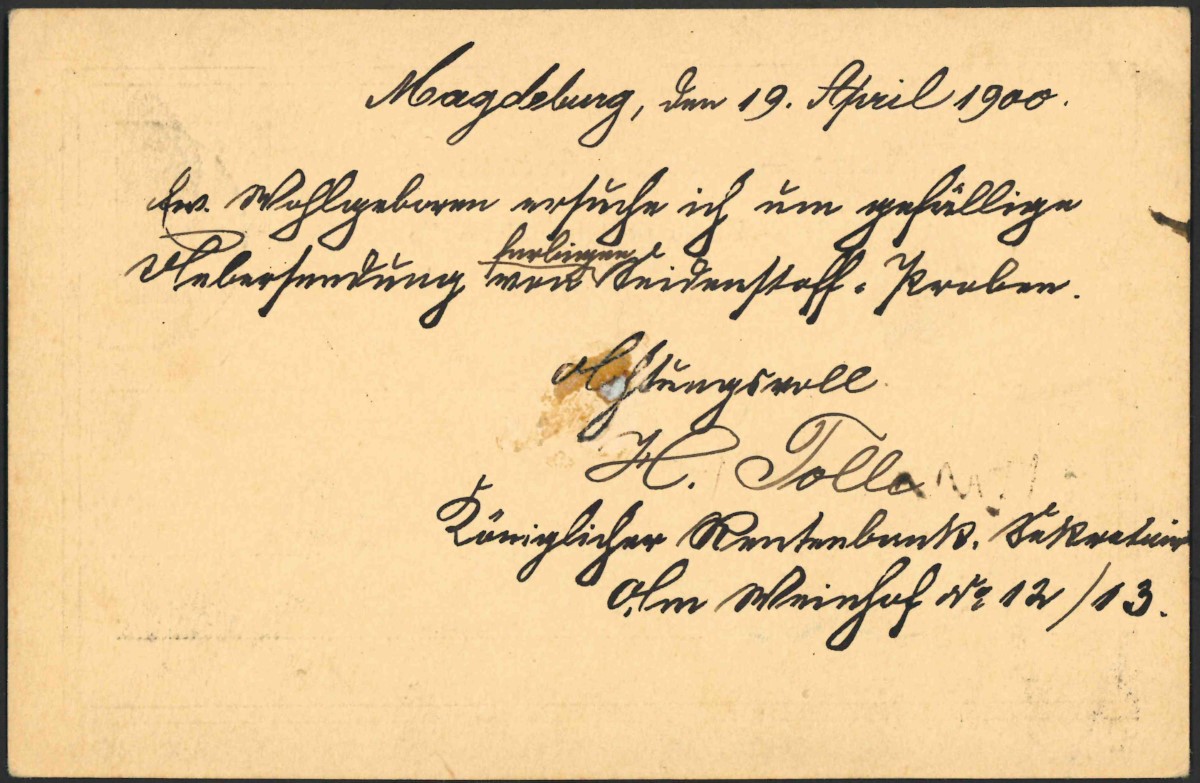 Magdeburg, den 19. April 1900.
Ew. Wohlgeboren ersuche ich um gefällige
farbigen
Uebersendung von Seidenstoff-Proben.
Achtungsvoll
H. Tolle
Königlicher Rentenbank-Sekretair
Am Weinhof No 12/13.